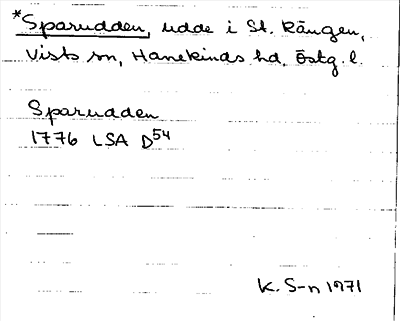 *Sparudden, udde i St. Rängen,
Vists sn, Hanekinds hd, Östg. l.
Sparudden
1776 LSA D54
K. S-n 1971